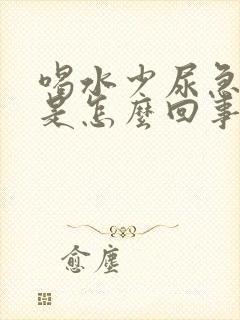 喝水少尿急
是怎麼回事
愈塵